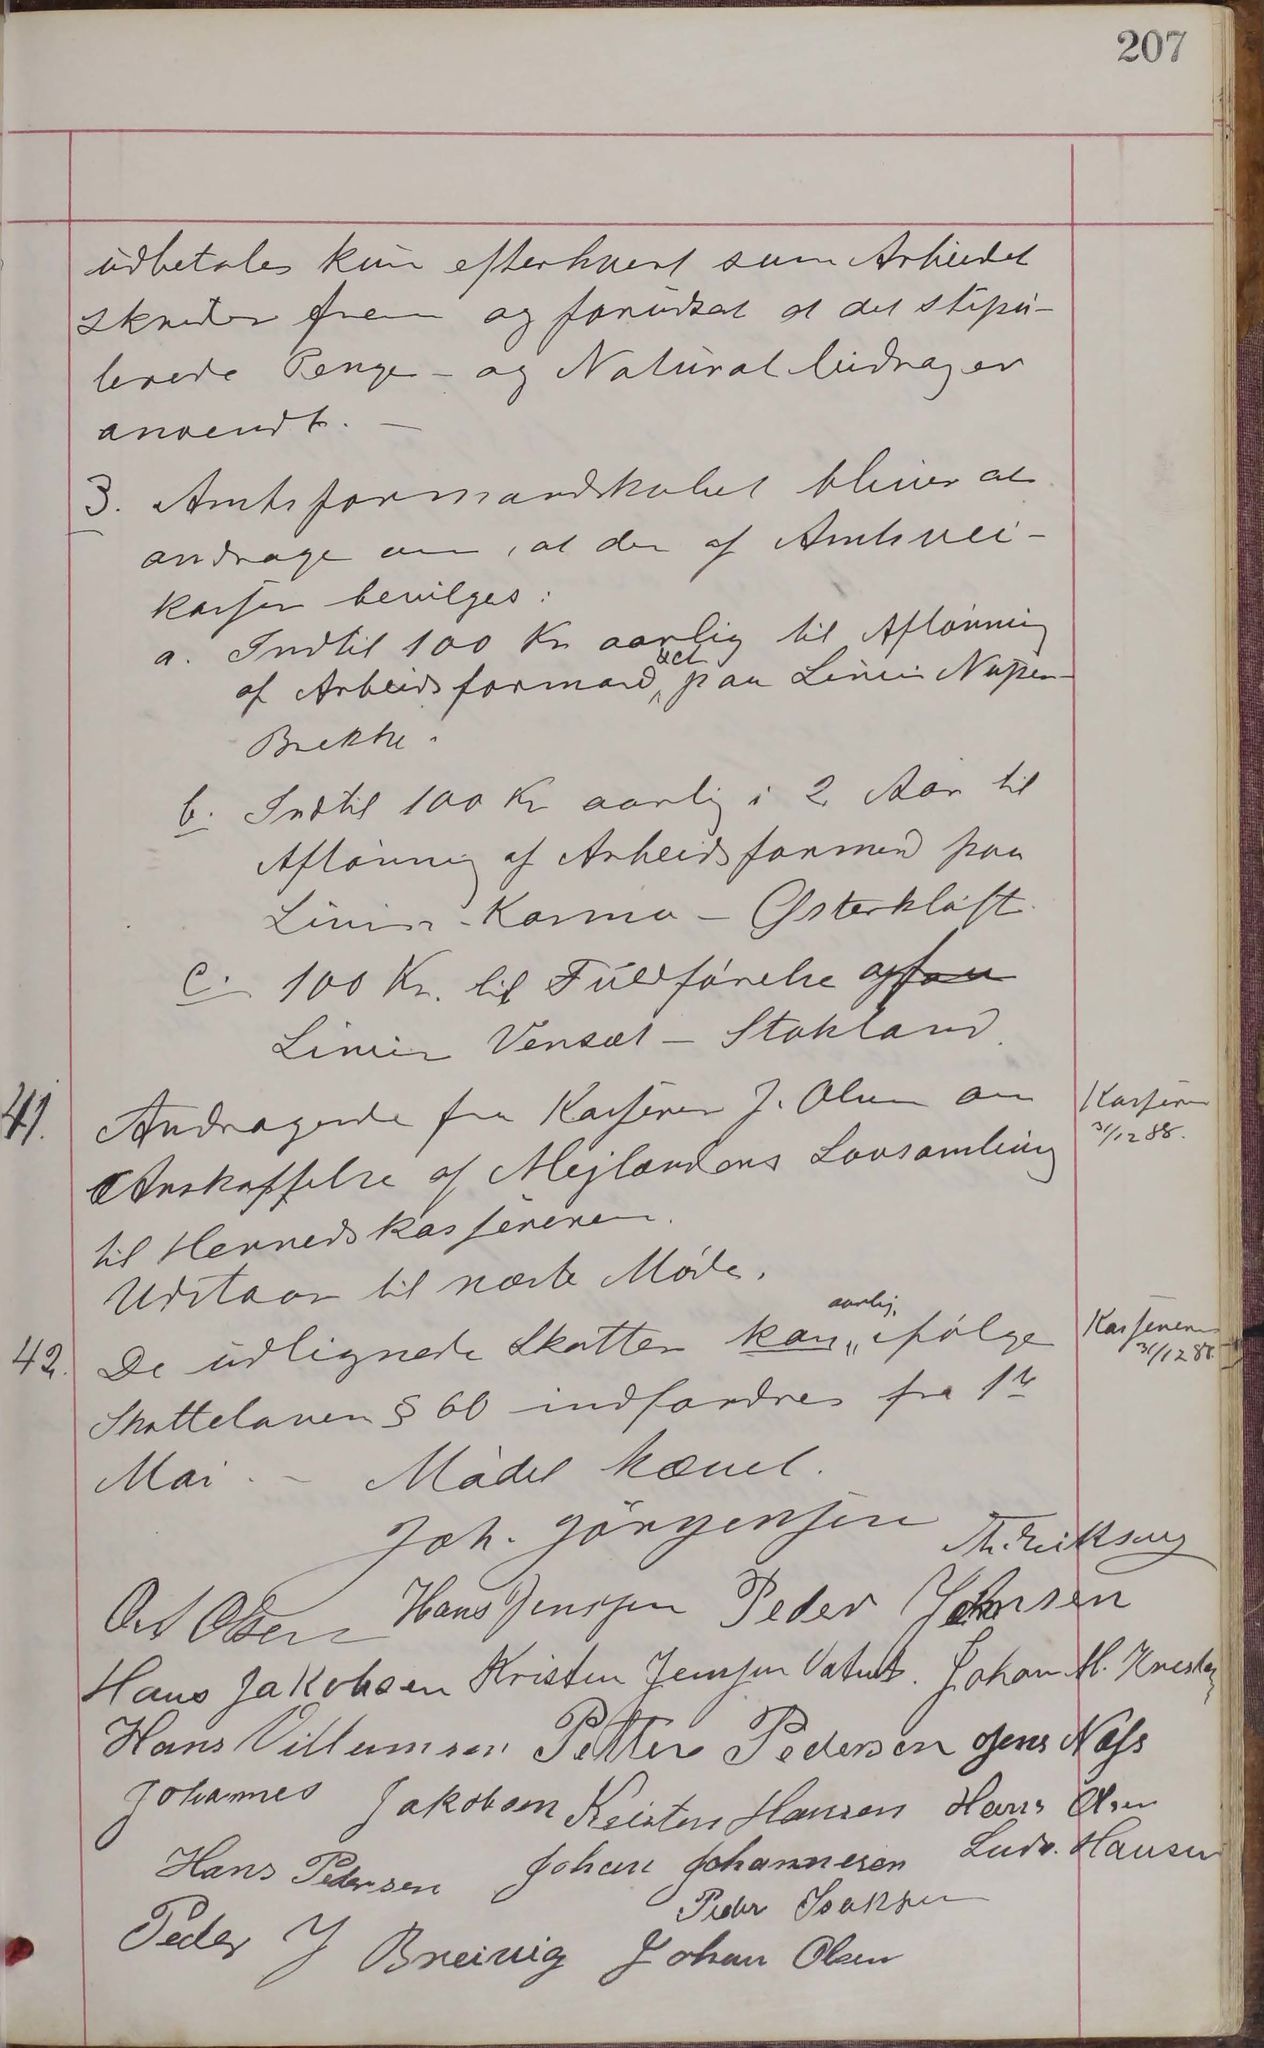 207
udbetales kun efterhvert som Arbeidet
skrider frem og forudsat at det stipu-
lerede Penge- og Naturalbidrag er
anvendt. –
3. Amtsformandskabet bliver at
andrage om, at der af Amtsvei-
kassen bevilges:
a. Indtil 100 Kr aarlig til Aflønning
af Arbeidsformand paa Linien Nupen-
Brekke.
b. Indtil 100 Kr aarlig i 2 Aar til
Aflønning af Arbeidsformand paa
Linien Kasmo – Østerkløft.
c. 100 Kr. til Fuldførelse af
Linien Venset – Stokland.
41. Andragende fra Kasserer J. Olsen om
Kasseren
31/12 88.
Anskaffelse af Mejlændens Lovsamling
til Herredskassereren.
Udstaar til næste Møde.
42. De udlignede Skatter kan aarlig ifølge
Kassereren
31/12 88.
Skatteloven § 60 indfordres fra 1te
Mai. – Mødet hævet.
Joh. Jörgensen Th. Eriksen
Ort Olsen Hans Jenssen Peder Johnsen
Hans Jakobsen Kristen Jenssen Vatvik. Johan M.
Hans Villumsen Petter Pedersen Jens Næss
Johannes Jakobsen Kristen Hansen Hans Olsen
Hans Pedersen Johan Johannesen Ludv. Hansen
Peder Isaksen
Peder J Breivig Johan Olsen